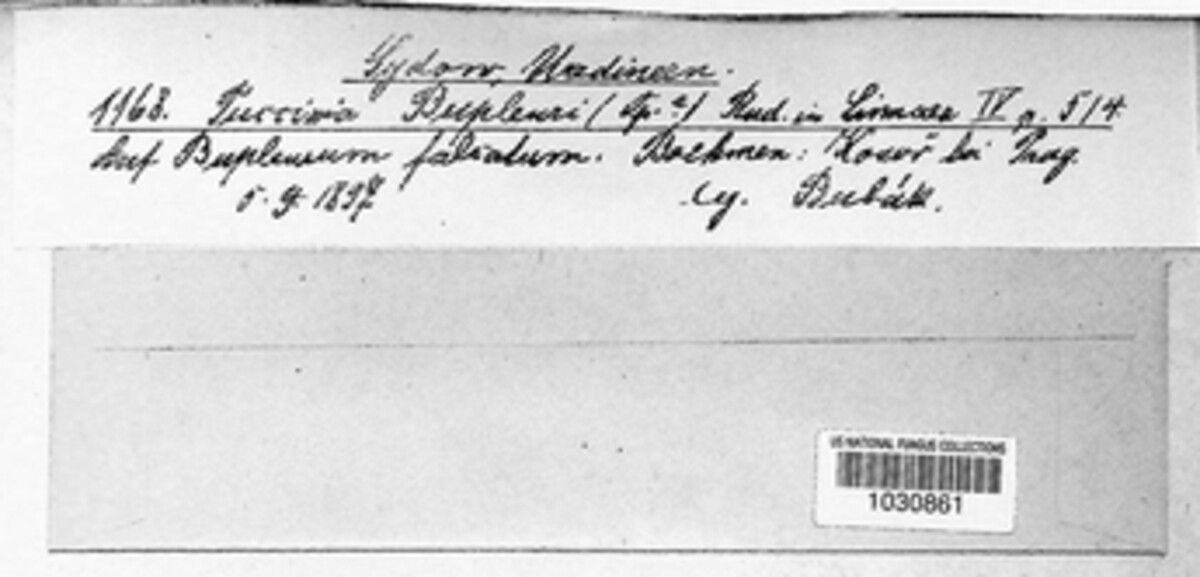 Sydow, Uredineen.
1168. Puccinia Bupleuri ( Op. ?) Rud. in Linnaea IV p. 514.
Auf Bupleurum falcatum. Boehmen: Kosoř bei Prag.
5. 9. 1897 leg. Bubák.
US NATIONAL FUNGUS COLLECTIONS
1030861